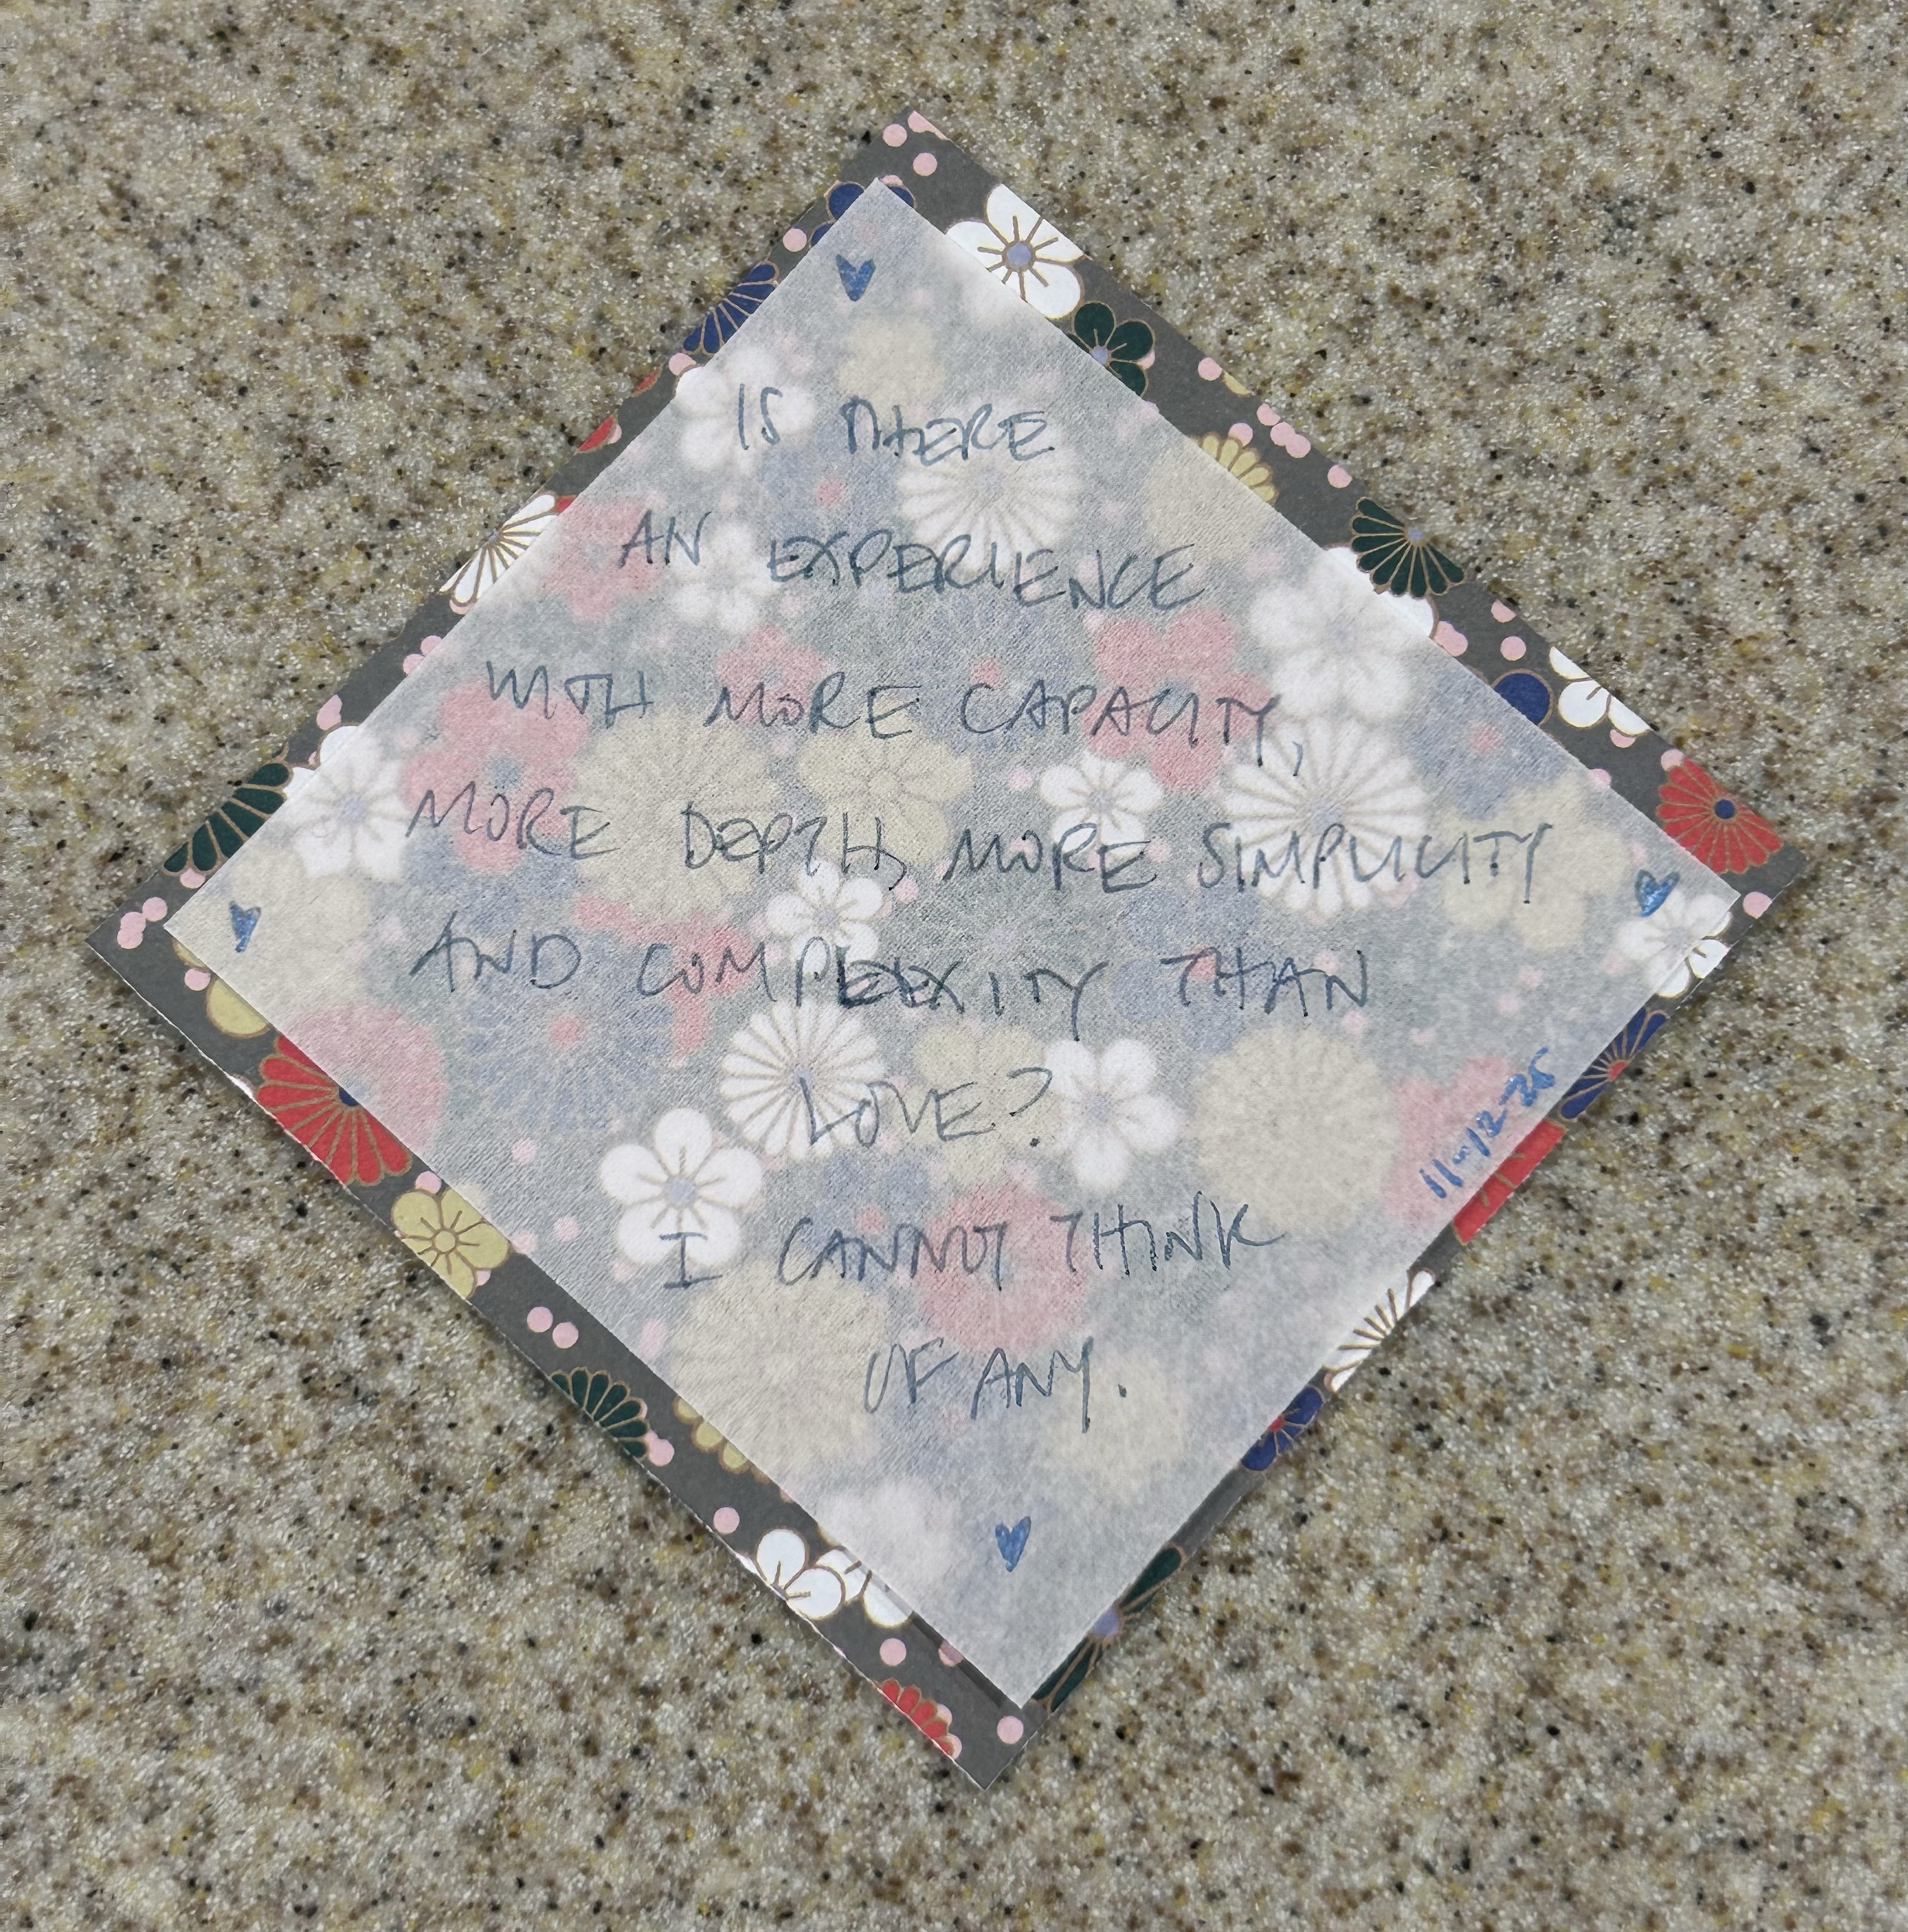 IS THERE
AN EXPERIENCE
WITH MORE CAPACITY,
MORE DEPTH, MORE SIMPLICITY
AND COMPLEXITY THAN
LOVE?
I CANNOT THINK
OF ANY.
11-12-25